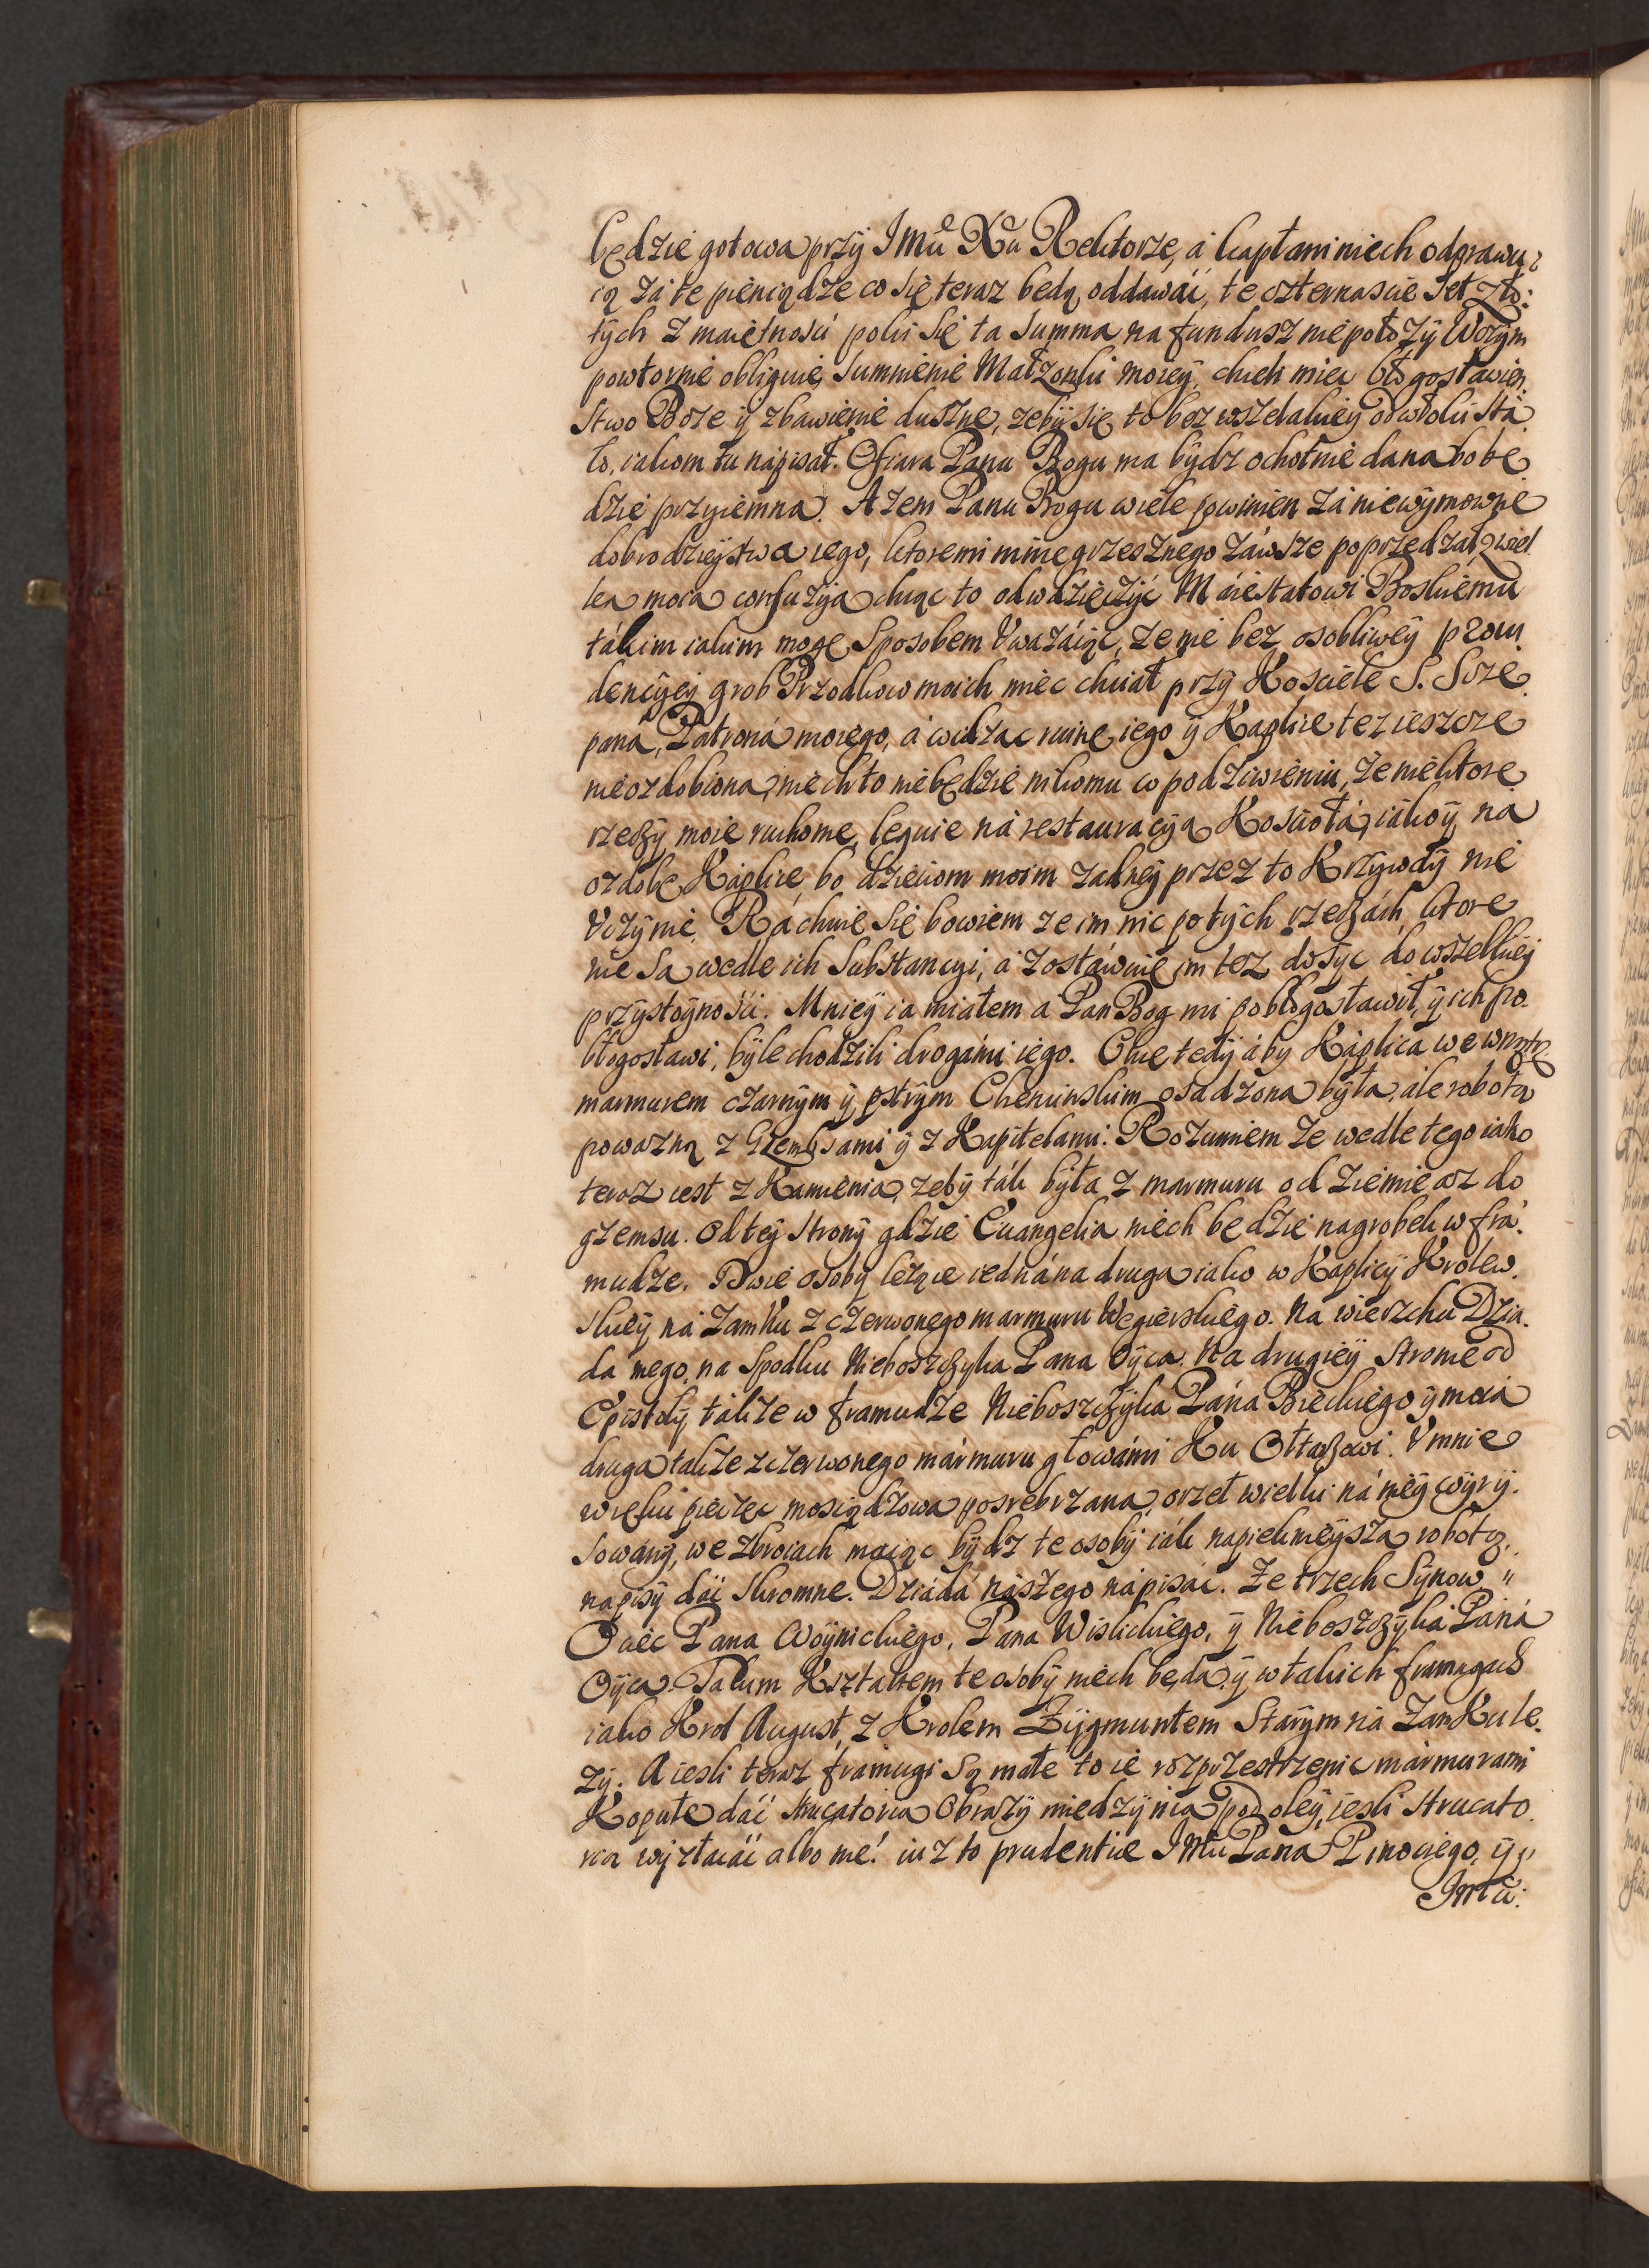 będzie gotowa przÿ Jmu Xu Rektorze, á kapłani niech odprawu:
ią zá te pieniądze co się teraz będą oddawáć, te czternascie set zło:
tÿch z maiętnośći poki się ta summa na fundusz nie połozÿ Wczÿm
powtornie obliguię summienie Małzonki moieÿ, chceli miec błogosławien.
stwo Boze ÿ zbawienie duszne, zebÿ się to bez wszelakieÿ odwłoki stá.
ło, iakom tu nápisał. Ofiara Panu Bogu ma bÿdz ochotnie dana bo bę.
dzie przyiemna. Azem Panu Bogu wiele powinien zá niewÿmowne
dobrodzieÿstwa iego, ktoremi mnie grzesznego záwsze poprzedzał, z wiel
ka moia confuzÿa chcąc to odwdzięczÿć Máiestatowi Boskiemu
tákim iakim mogę sposobem Vwazáiąc, ze nie bez osobliweÿ prowi
dencÿeÿ grob Przodkow moich miec chciał przÿ Kosciele S. Scze
paná, Patroná moiego, á widzac ruinę iego ÿ Kaplice tez ieszcze
nieozdobiona, niech to niebędzie nikomu w podziwieniu, ze niektore
rzeczÿ moie ruchome, leguie ná restauracÿą Koscioła, iako ÿ na
ozdobę Káplice, bo dzieciom moim zadneÿ przez to Krzÿwdÿ nie
Vczÿnie. Ráchuie się bowiem ze im nic po tÿch rzeczách, ktore
nie sa wedle ich substancyi, á zostáwuię im tez dosÿc do wszelkieÿ
przÿstoÿnośći. Mnieÿ ia miałem a Pan Bog mi pobłogosławił, ÿ ich po.
błogosławi, bÿle chodzili drogámi iego. Chcę tedÿ áby Káplica we wnątrz
marmurem czarnÿm ÿ pstrÿm Chencinskim osadzona bÿła, ale robotą
powazną z Gzembsami ÿ z Kapitelami: Rozumiem ze wedle tego iako
teraz iest z Kamienia, zebÿ ták bÿła z marmuru od ziemie asz do
gzemsu. Od teÿ stronÿ gdzie Euangelia niech będzie nagrobek w frá.
mudze. Dwie osobÿ lezące iedná na druga iako w Kaplicÿ Krolew.
skieÿ ná Zamku z czerwonego marmuru Węgierskiego. Na wierzchu Dzia.
da mego, na spodku Nieboszczÿka Pana Oÿca. Na drugieÿ stronie od
Epistolÿ tákze w framudze Nieboszczÿka Pána Bieckiego ÿ moiá
druga takze z czerwonego mármuru głowámi Ku Ołtarzowi. V mnie
wielki pieczęc mosiądzowa posrebrzana, orzeł wielki ná nieÿ wÿrÿ.
sowánÿ, we zbroiach máiąc bÿdz te osobÿ iák napiekniejsza robotą,
napisÿ dáć skromne. Dziádá nászego nápisáć. Ze trzech Sÿnow
Oiiec Pana Woÿnickiego, Pana Wislickiego, ÿ Nieboszczÿka Paná
Oÿca. Takim Kształtem te osobÿ niech będa, ÿ w takich framugach
iako Krol August, z Krolem Zÿgmuntem Starÿm ná Zamku le.
zÿ. A iesli teraz framugi są małe to ie rozprzestrzenic mármurami
Kopułę dáć strucatoria Obrazÿ międzÿ nią po oleÿ, iesli strucato
ria wÿzłacáć albo nie? iuz to prudentiæ JMci Pana Pinociego, ÿ
Jmci: